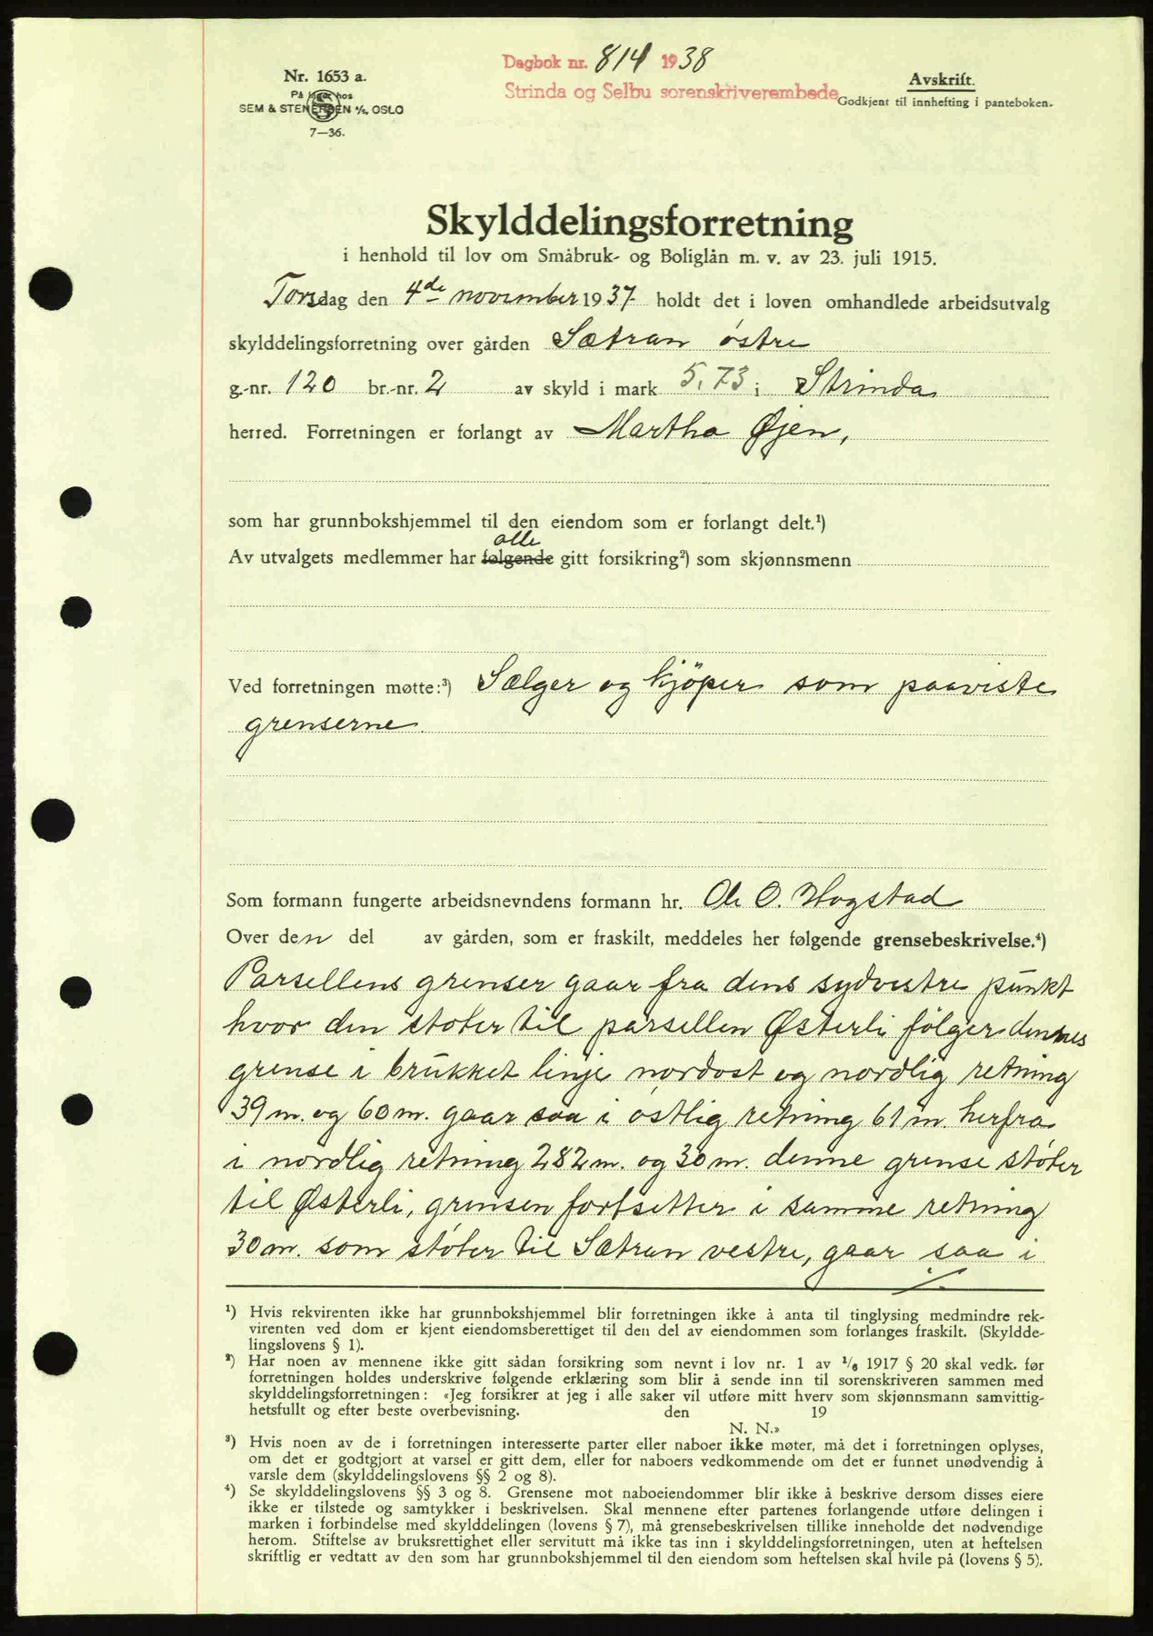 Dagbok nr. 814 1938
Strinda og Selbu sorenskriverembede
Nr. 1653 a.
På lager hos
SEM & STENERSEN A/S, OSLO
7—36.
Avskrift.
Godkjent til innhefting i panteboken.
Skylddelingsforretning
i henhold til lov om Småbruk- og Boliglån m. v. av 23. juli 1915.
Torsdag den 4de november 1937 holdt det i loven omhandlede arbeidsutvalg
skylddelingsforretning over gården Sætran østre
g.-nr. 120 br.-nr. 2 av skyld i mark 5,73 i Strinda
herred. Forretningen er forlangt av Martha Øjen,
som har grunnbokshjemmel til den eiendom som er forlangt delt.¹)
alle
Av utvalgets medlemmer har følgende gitt forsikring²) som skjønnsmenn
Ved forretningen møtte:³) Sælger og kjöper som paaviste
grenserne
Som formann fungerte arbeidsnevndens formann hr. Ole O. Hogstad
Over den del av gården, som er fraskilt, meddeles her følgende grensebeskrivelse.⁴)
Parsellens grenser gaar fra dens sydvestre punkt
hvor den støter til parsellen Østerli følger dennes
grense i brukket linje nordost og nordlig retning
39 m. og 60 m. gaar saa i østlig retning 61 m. herfra
i nordlig retning 282 m. og 30 m. denne grense støter
til Østerli, grensen fortsetter i samme retning
30 m. som støter til Sætran vestre, gaar saa i
./.
¹) Hvis rekvirenten ikke har grunnbokshjemmel blir forretningen ikke å anta til tinglysing medmindre rek-
virenten ved dom er kjent eiendomsberettiget til den del av eiendommen som forlanges fraskilt. (Skyldde-
lingslovens § 1).
²) Har noen av mennene ikke gitt sådan forsikring som nevnt i lov nr. 1 av 1/6 1917 § 20 skal vedk. før
forretningen holdes underskrive følgende erklæring som blir å sende inn til sorenskriveren sammen med
skylddelingsforretningen: «Jeg forsikrer at jeg i alle saker vil utføre mitt hverv som skjønnsmann samvittig-
hetsfullt og efter beste overbevisning. den 19
N. N.»
³) Hvis noen av de i forretningen interesserte parter eller naboer ikke møter, må det i forretningen oplyses,
om det er godtgjort at varsel er gitt dem, eller for naboers vedkommende om det er funnet unødvendig å
varsle dem (skylddelingslovens §§ 2 og 8).
⁴) Se skylddelingslovens §§ 3 og 8. Grensene mot naboeiendommer blir ikke å beskrive dersom disses eiere
ikke er tilstede og samtykker i beskrivelsen. Skal mennene efter partenes forlangende utføre delingen i
marken i forbindelse med skylddelingen (lovens § 7), må grensebeskrivelsen tillike inneholde det nødvendige
herom. Stiftelse av bruksrettighet eller servitutt må ikke tas inn i skylddelingsforretningen, uten at heftelsen
skriftlig er vedtatt av den som har grunnbokshjemmel til den eiendom som heftelsen skal hvile på (lovens § 5).